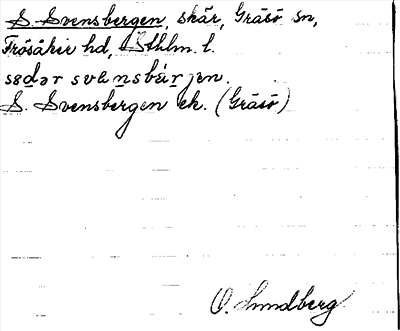 S. Svensbergen, skär, Gräsö sn,
Frösåker hd, Sthlm. l.
sɞdər svensbärjen.
S. Svensbergen ek. (Gräsö)
O. Lundberg